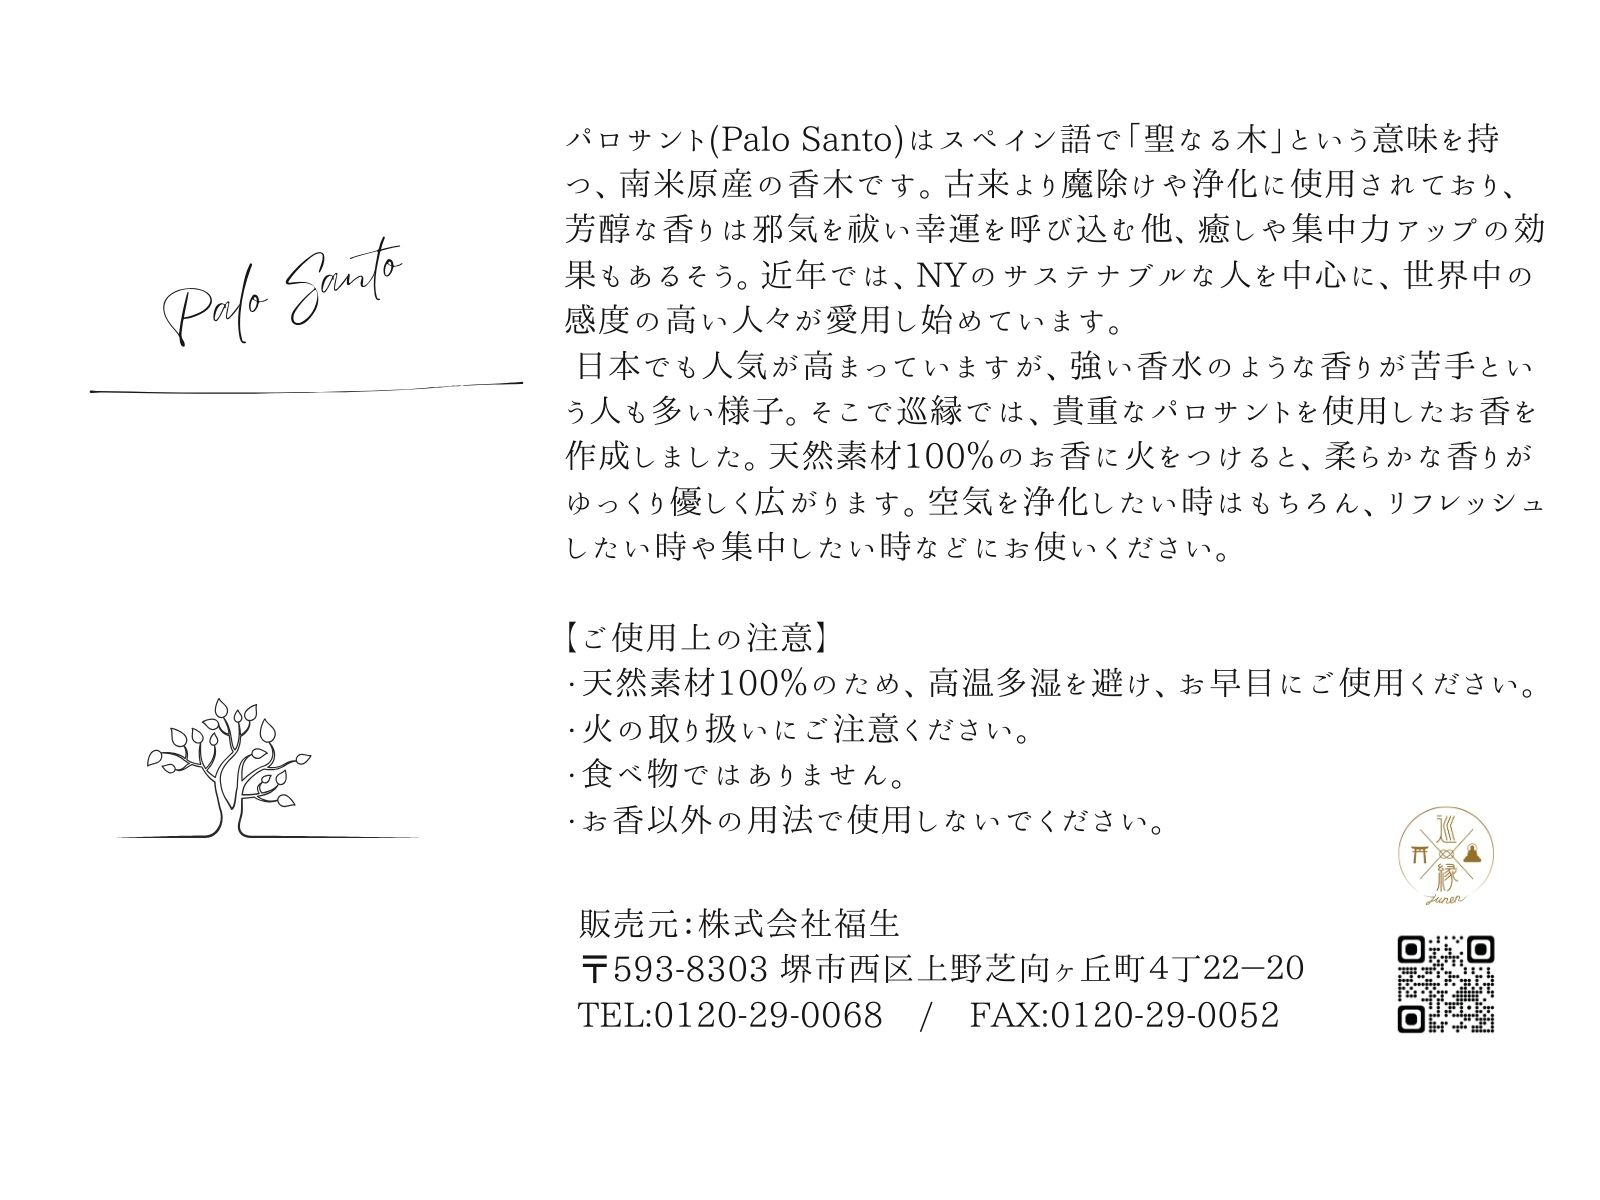 Palo Santo
パロサント(Palo Santo)はスペイン語で「聖なる木」という意味を持
つ、南米原産の香木です。古来より魔除けや浄化に使用されており、
芳醇な香りは邪気を祓い幸運を呼び込む他、癒しや集中力アップの効
果もあるそう。近年では、NYのサステナブルな人を中心に、世界中の
感度の高い人々が愛用し始めています。
日本でも人気が高まっていますが、強い香水のような香りが苦手とい
う人も多い様子。そこで巡縁では、貴重なパロサントを使用したお香を
作成しました。天然素材100%のお香に火をつけると、柔らかな香りが
ゆっくり優しく広がります。空気を浄化したい時はもちろん、リフレッシュ
したい時や集中したい時などにお使いください。
【ご使用上の注意】
·天然素材100%のため、高温多湿を避け、お早目にご使用ください。
·火の取り扱いにご注意ください。
·食べ物ではありません。
·お香以外の用法で使用しないでください。
巡
縁
Junen
販売元:株式会社福生
〒593-8303 堺市西区上野芝向ヶ丘町4丁22−20
TEL:0120-29-0068 / FAX:0120-29-0052